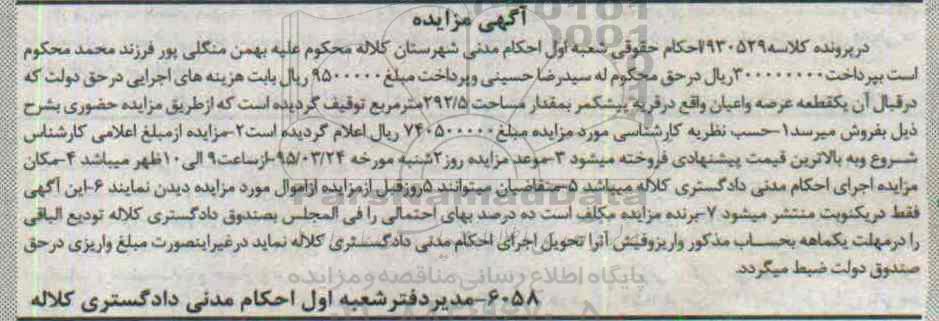 آگهی مزایده
درپرونده کلاسه۹۳۰۵۲۹/احکام حقوقی شعبه اول احکام مدنی شهرستان کلاله محکوم علیه بهمن منگلی پور فرزند محمد محکوم
است بپرداخت۳۰۰۰۰۰۰۰۰ریال درحق محکوم له سیدرضا حسینی وپرداخت مبلغ ۹۵۰۰۰۰۰ ریال بابت هزینه های اجرایی درحق دولت که
درقبال آن یکقطعه عرصه واعیان واقع درقریه پیشکمر بمقدار مساحت ۲۹۲/۵مترمربع توقیف گردیده است که ازطریق مزایده حضوری بشرح
ذیل بفروش میرسد۱-حسب نظریه کارشناسی مورد مزایده مبلغ۷۴۰۵۰۰۰۰۰ ریال اعلام گردیده است۲-مزایده ازمبلغ اعلامی کارشناس
شروع وبه بالاترین قیمت پیشنهادی فروخته میشود ۳-موعد مزایده روز۲شنبه مورخه ۹۵/۰۳/۲۴-ازساعت۹ الی۱۰ظهر میباشد ۴-مکان
مزایده اجرای احکام مدنی دادگستری کلاله میباشد ۵-متقاضیان میتوانند ۵روزقبل ازمزایده ازاموال مورد مزایده دیدن نمایند ۶-این آگهی
فقط دریکنوبت منتشر میشود ۷-برنده مزایده مکلف است ده درصد بهای احتمالی را فی المجلس بصندوق دادگستری کلاله تودیع الباقی
را درمهلت یکماهه بحساب مذکور واریزوفیش آنرا تحویل اجرای احکام مدنی دادگستری کلاله نماید درغیراینصورت مبلغ واریزی درحق
صندوق دولت ضبط میگردد.
پایگاه اطلاع رسانی مناقصه و مزایده
ParsNamadData
۶۰۵۸-مدیردفترشعبه اول احکام مدنی دادگستری کلاله